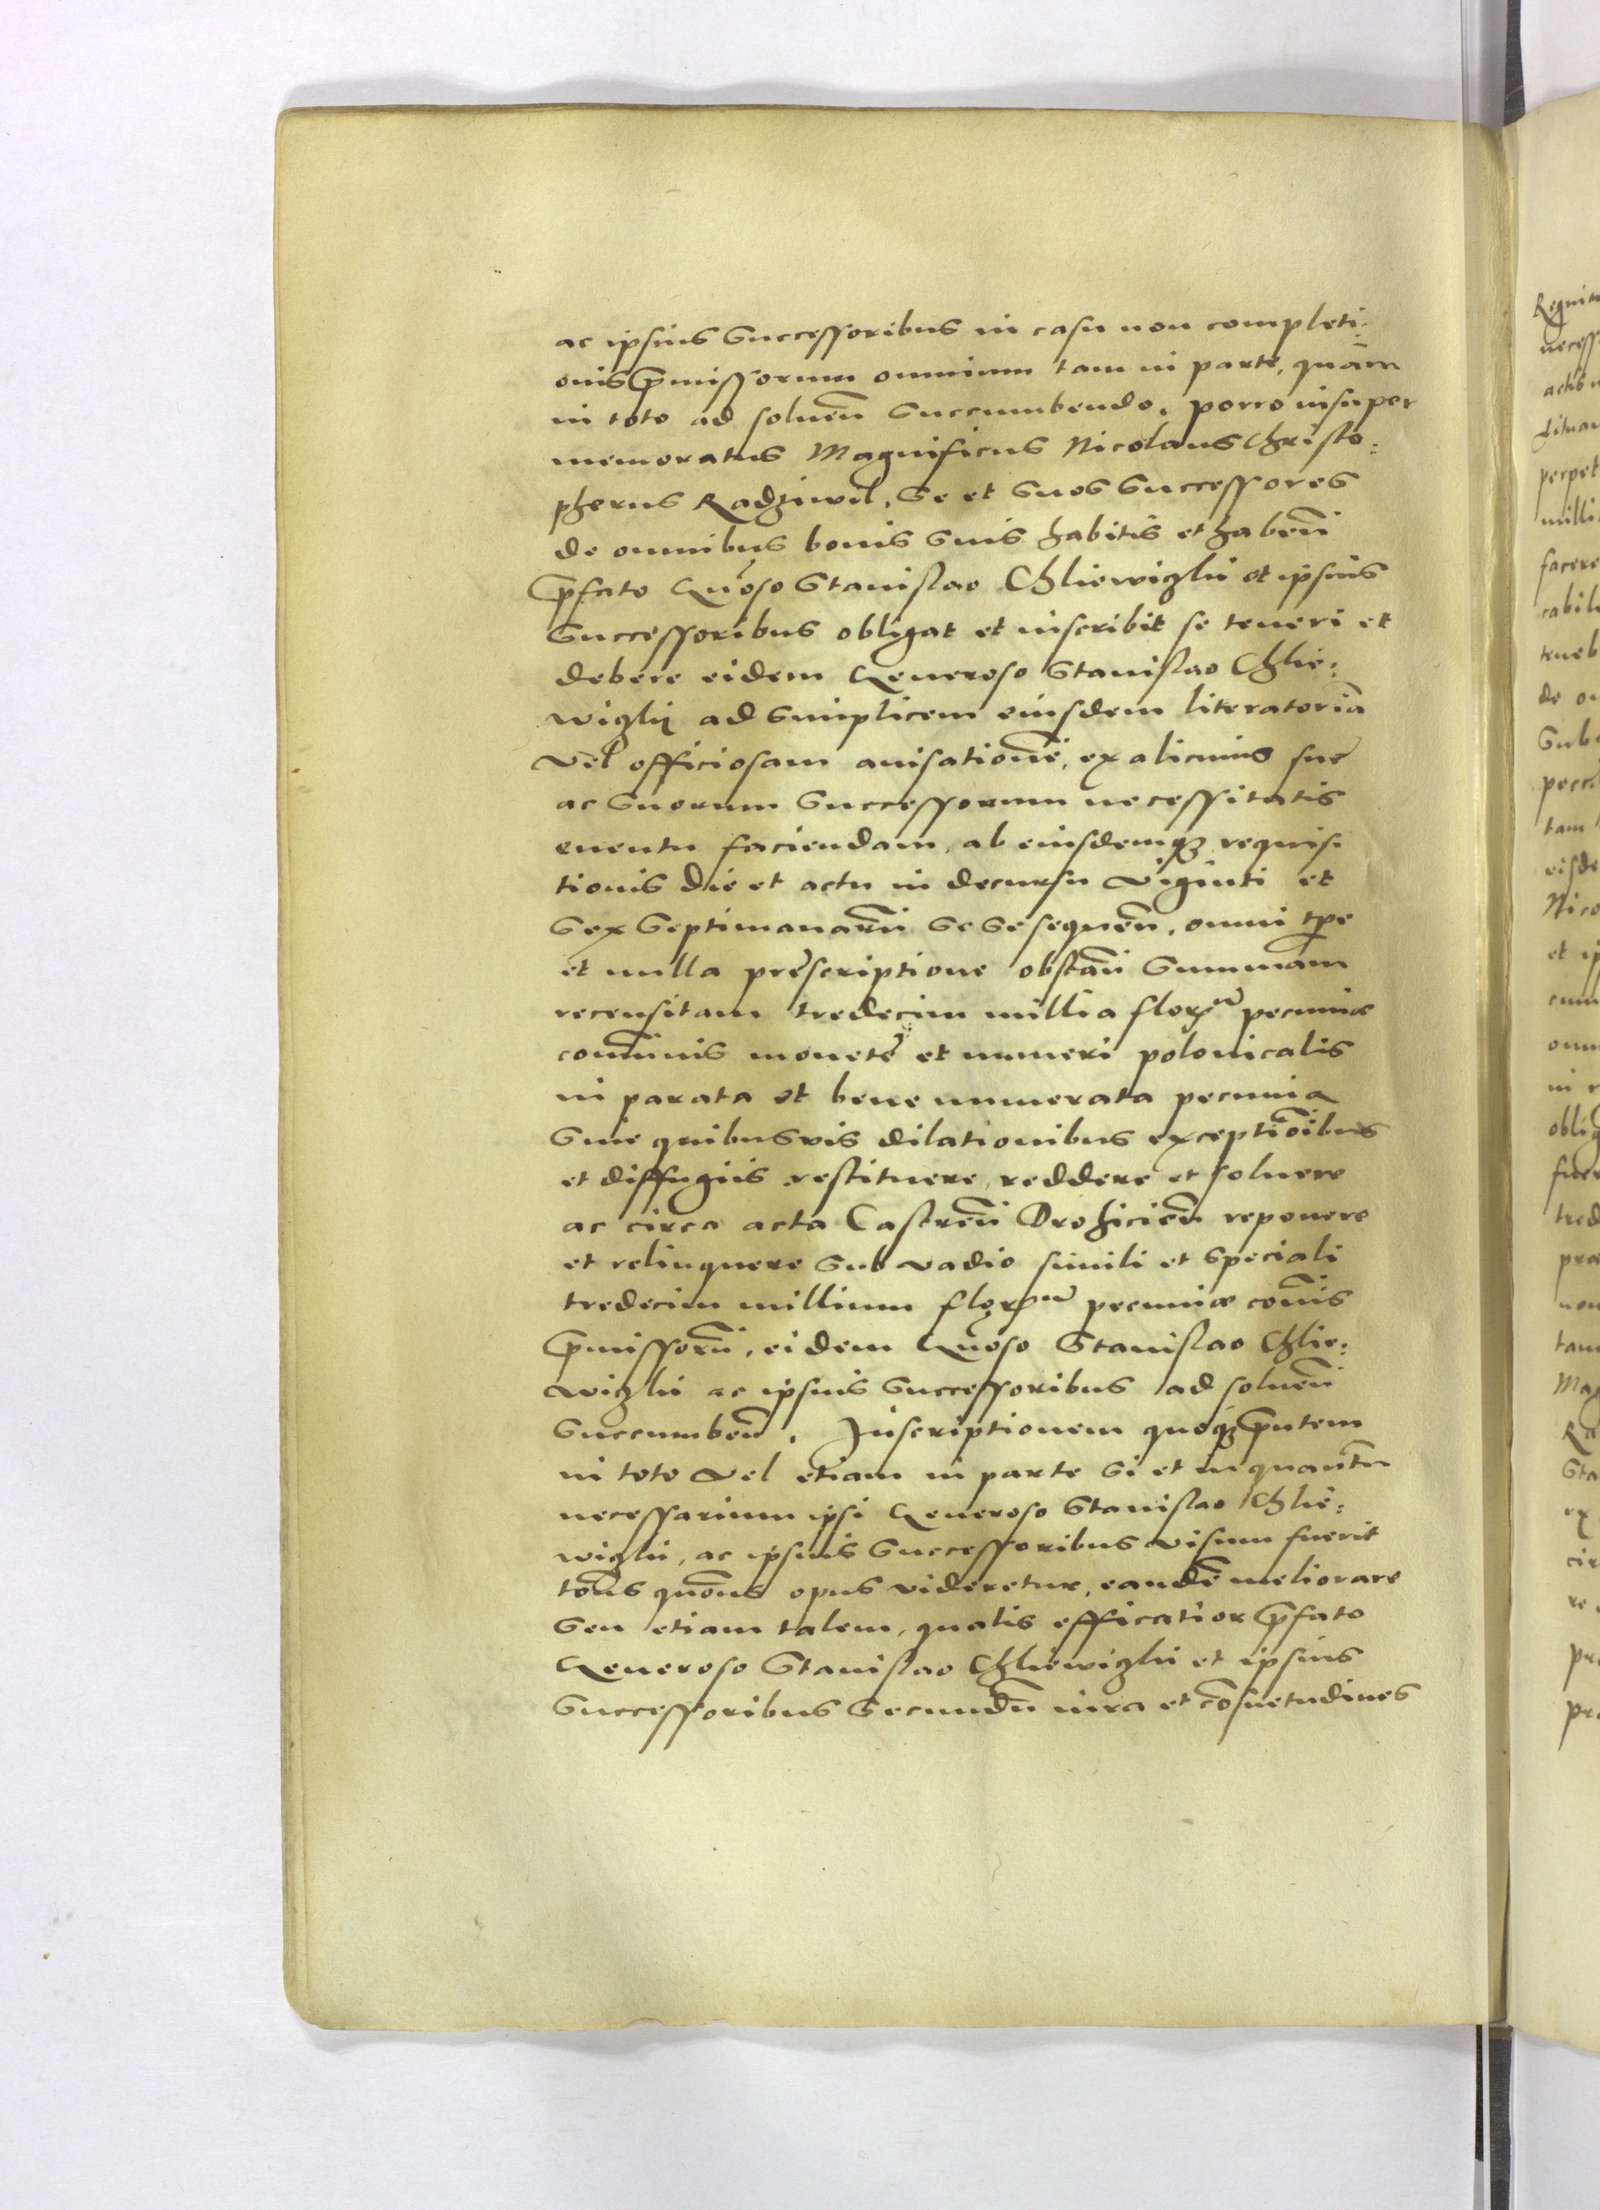 ac ipsius Successoribus in casu non completi:
onis p̄missorum omnium tam in parte, quàm
in toto ad soluen̄ Succumbendo. porro insuper
memoratus Magnificus Nicolaus Christo:
pherus Radziwil, Se et Suos Successores
de omnibus bonis Suis habitis et haben̄
p̄fato Gn̄oso Stanislao Chliewizky et ipsius
Successoribus obligat et inscribit se teneri et
debere eidem Generoso Stanislao Chlie:
wizky ad Simplicem eiusdem literatoriā
vel officiosam auisationē, ex alicuius suę
ac Suorum Successorum necessitatis
euentu faciendam, ab eiusdemqȝ requisi
tionis die et actu in decursu viginti et
Sex Septimanarū Se Se sequen̄, omni tp̄e
et nulla pręscriptione obstan̄ Summam
recensitam tredecim millia florᵘ pecuniæ
com̄unis monetę et numeri polonicalis
in parata et bene numerata pecunia
Sine quibusuis dilationibus exceptiōibus
et diffugiis restituere, reddere et soluere
ac circa acta Castren̄ Drohicien̄ reponere
et relinquere Sub vadio simili et Speciali
tredecim millium florᵘ pecuniæ com̄is
p̄missorū, eidem Gn̄oso Stanislao Chlie:
wizky ac ipsius Successoribus ad soluen̄
Succumben̄. Inscriptionem quoqȝ p̄ntem
in toto vel etiam in parte Si et inquantū
necessarium ipsi Generoso Stanislao Chlie:
wizky, ac ipsius Successoribus visum fuerit
totīes quotīes opus videretur, eandē meliorare
Seu etiam talem, qualis efficatior p̄fato
Generoso Stanislao Chliewizky et ipsius
Successoribus Secundū iura et cōsuetudines